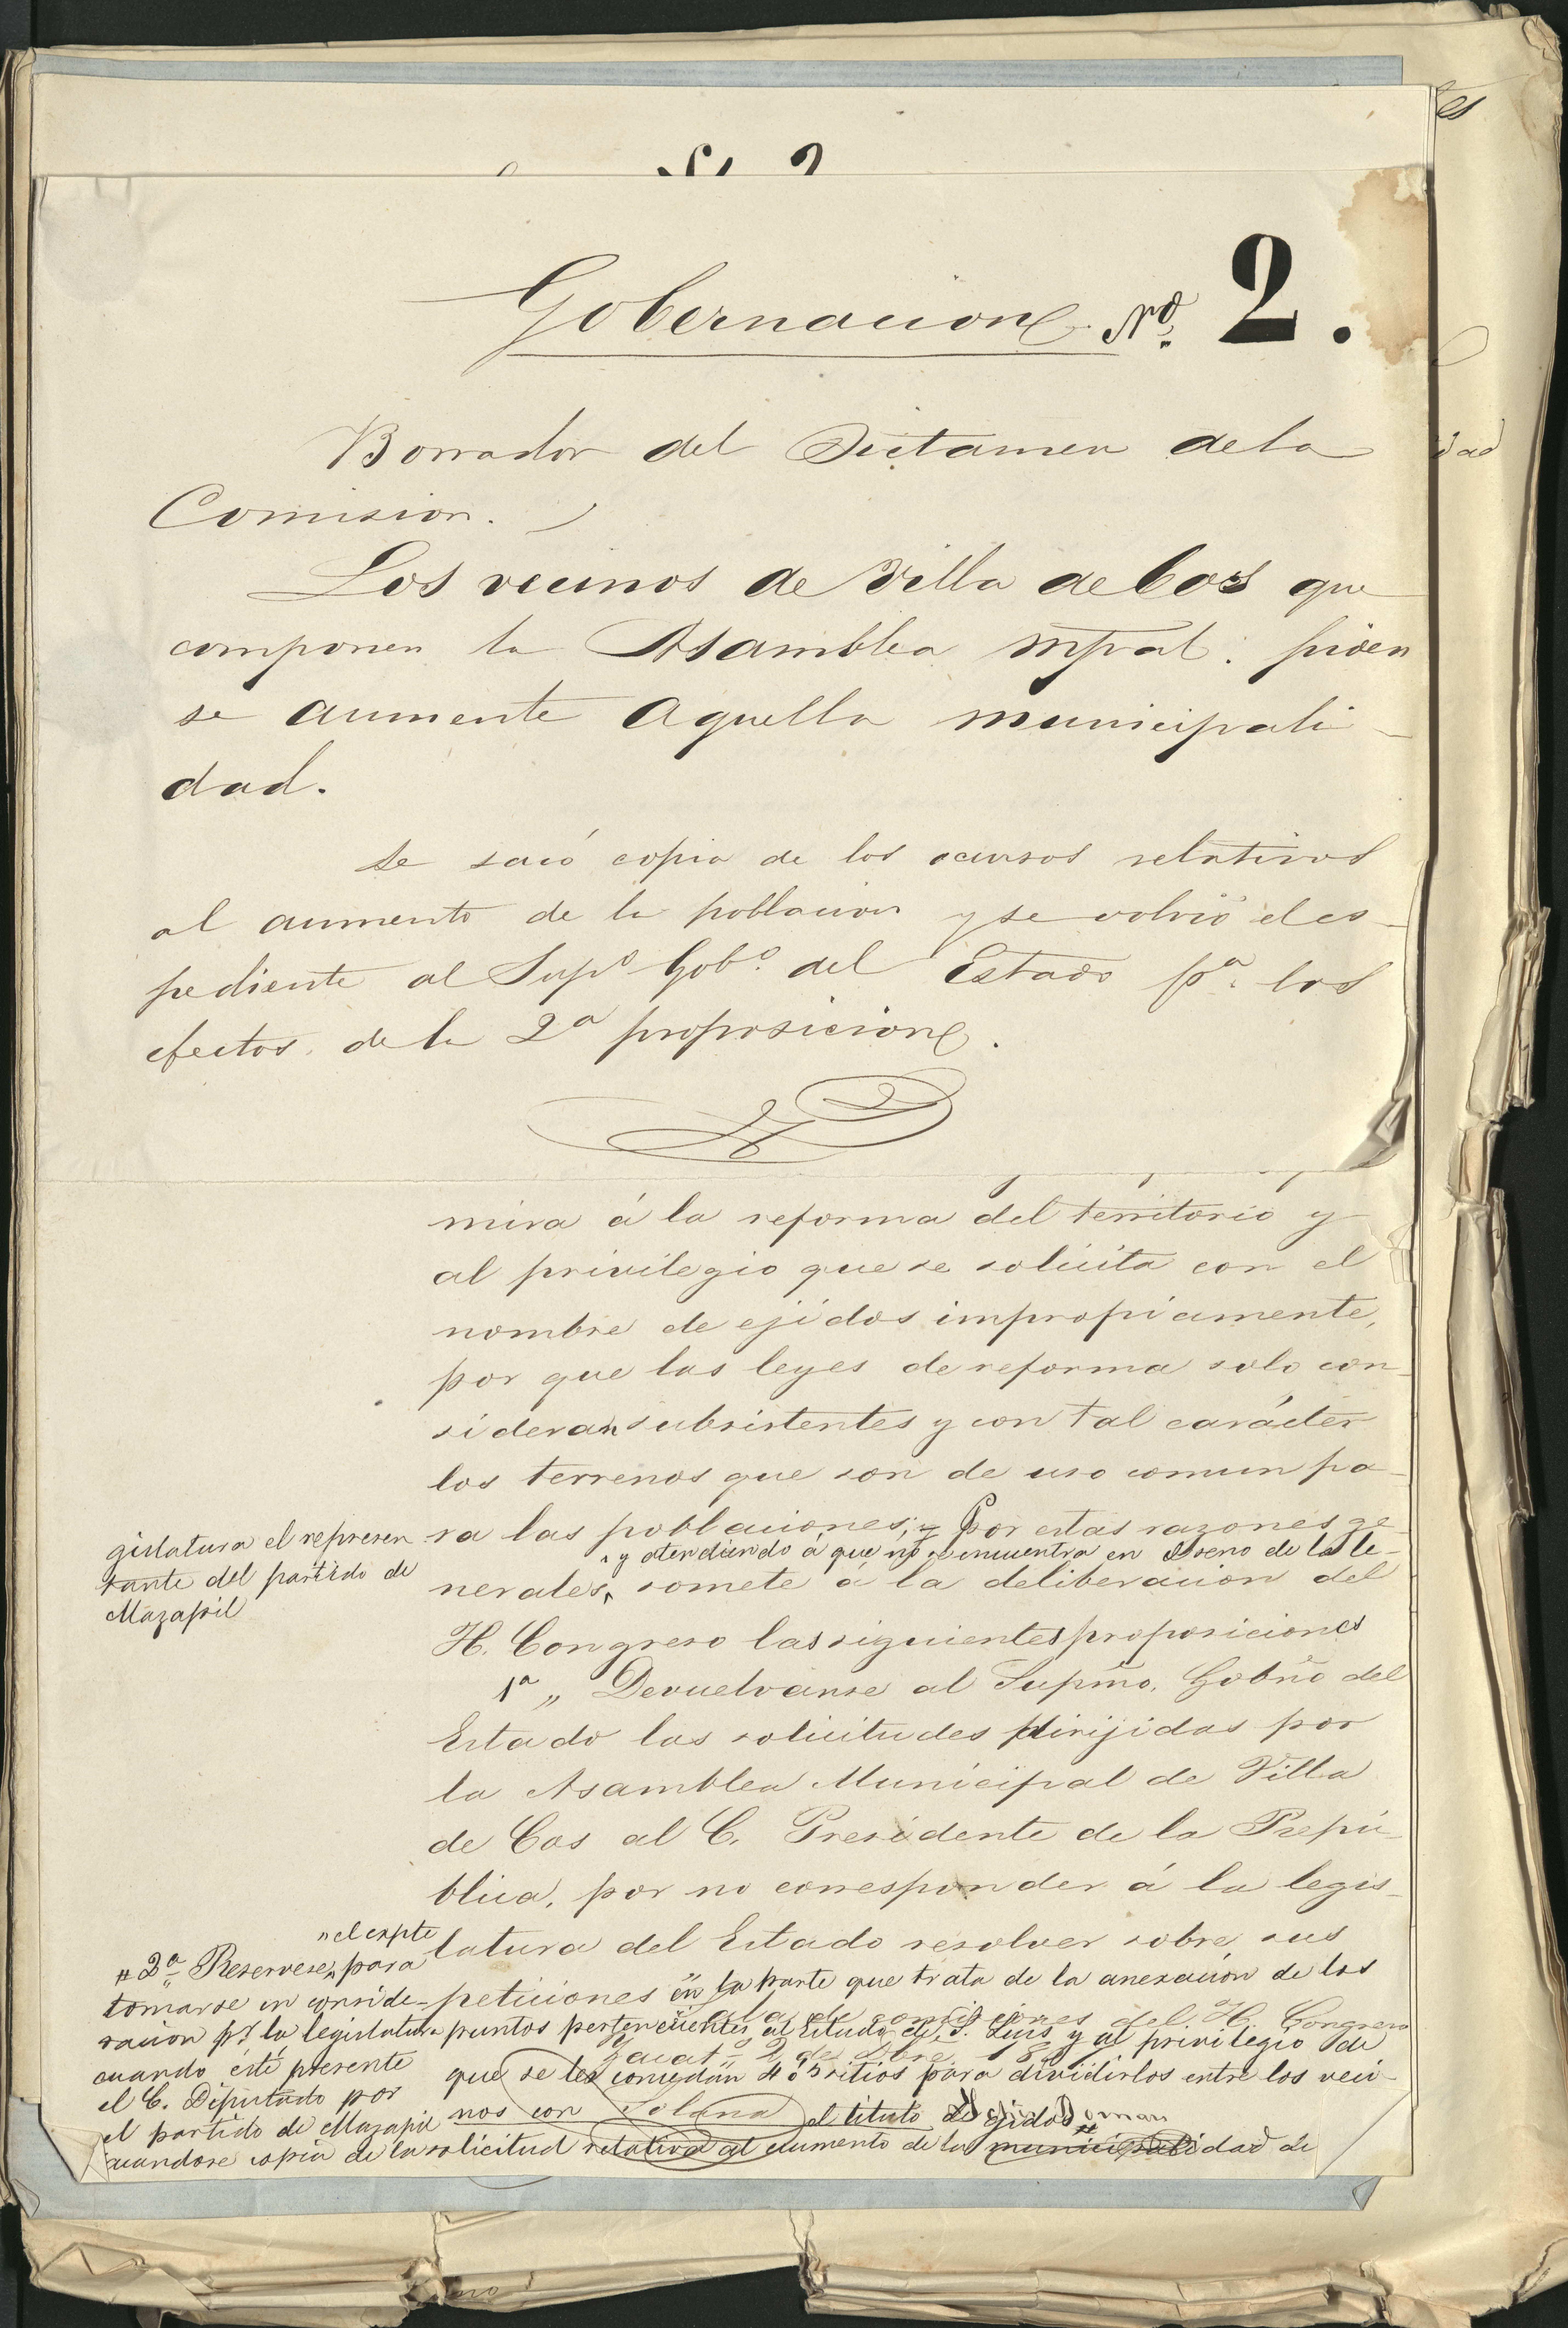 Gobernacion Nº 2.
Borrador del Dictamen de la
Comision.
Los vecinos de Villa de Cos que
componen la Asamblea Mpal. piden
se aumente aquella municipali-
dad.
Se sacó copia de los ocursos relativos
al aumento de la poblacion y se volvió el es-
pediente al Supº Gobº del Estado pª los
efectos de la 2ª proposicion.
mira á la reforma del territorio y
al privilegio que se solicita con el
nombre de ejidos impropiamente,
por que las leyes de reforma solo con-
sideran subsistentes y con tal carácter
los terrenos que son de uso comun pa-
ra las poblaciones; Por estas razones ge-
y atendiendo á que no se encuentra en el seno de la le-
gislatura el represen
tante del partido de
Mazapil
nerales, somete á la deliberacion del
H. Congreso las siguientes proposiciones
1ª „ Devuelvanse al Supmo. Gobno del
Estado las solicitudes dirijidas por
la Asamblea Municipal de Villa
de Cos al C. Presidente de la Repú-
blica, por no corresponder á la legis-
latura del Estado resolver sobre sus
peticiones en la parte que trata de la anexacion de los
puntos pertenecientes al Estado de S. Luis y al privilegio de
que se les concedan 4 ó 5 sitios para dividirlos entre los veci-
nos con el titulo de ejidos
Sala de comisiones del H. Congreso
Zacats 2 de Dbre 18
Solana
"el expte
# 2ª Reservese, para
tomarse en conside-
racion pr. la legislatura
cuando esté presente
el C. Diputado por
el partido de Mazapil
sacandose copia de la solicitud relativa al aumento de la municipalidad de